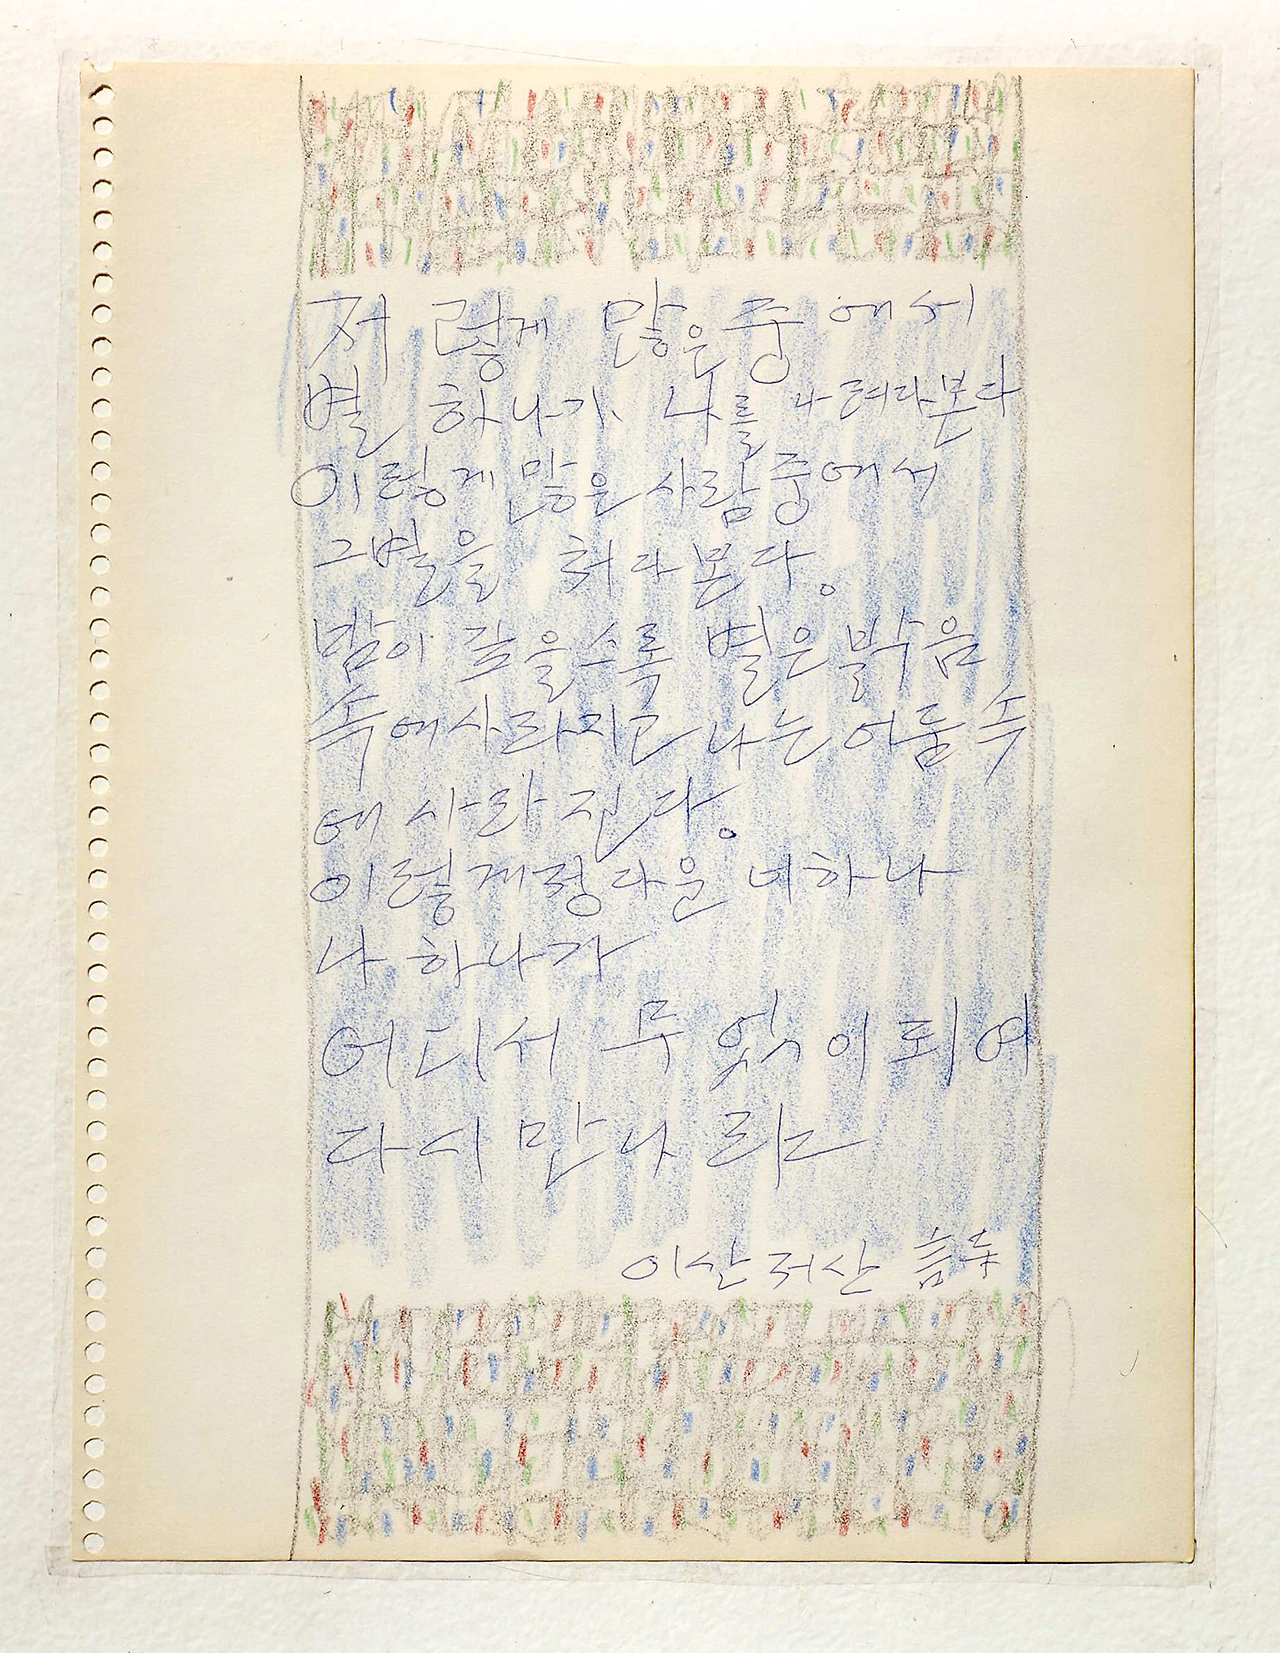 저렇게 많은 중에서
별 하나가 나를 나려다본다
이렇게 많은 사람 중에서
그별을 쳐다본다。
밤이 깊을수록 별은 밝음
속에사라지고 나는 어둠 속
에 사라진다。
이렇게정다운 너하나
나 하나가
어디서 무엇이 되어
다시 만나
이산저산 詩